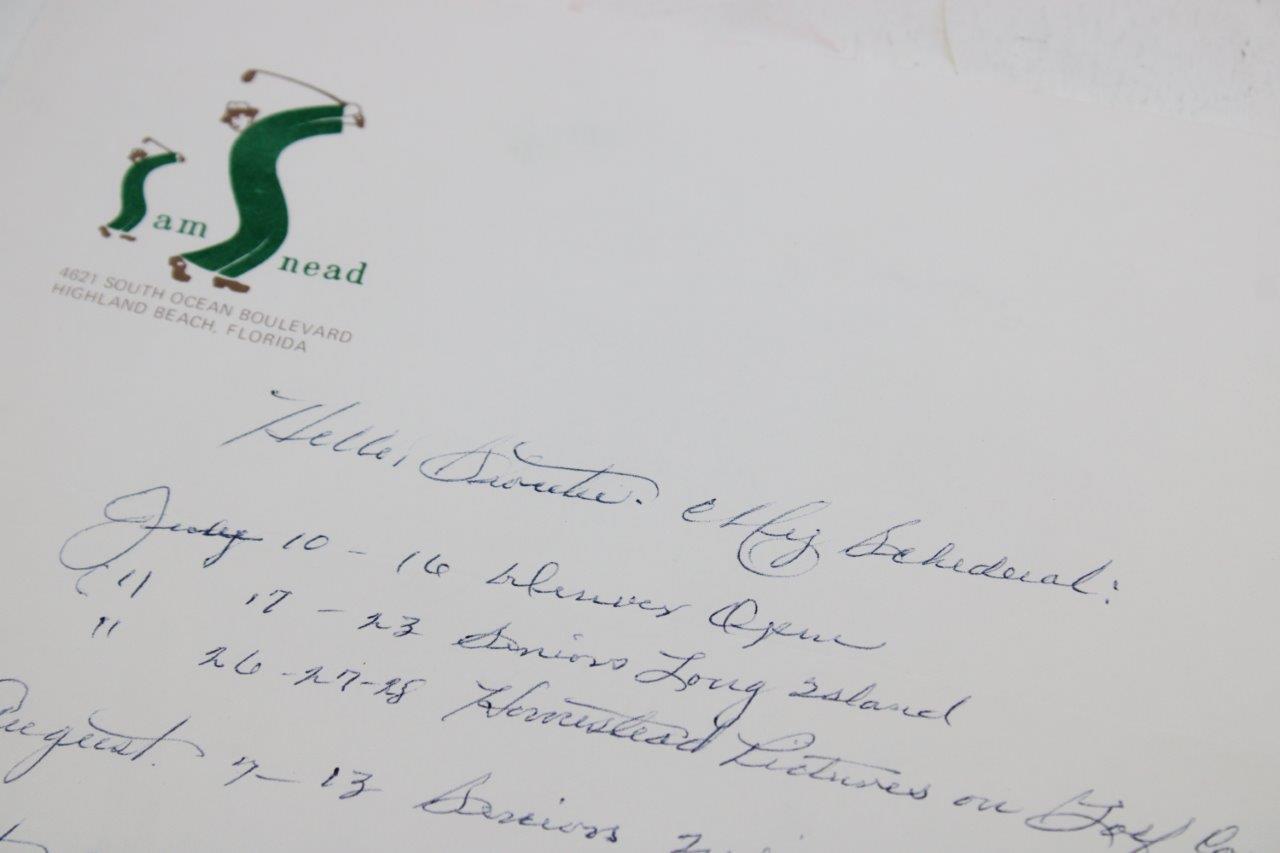 Sam Snead
4621 SOUTH OCEAN BOULEVARD
HIGHLAND BEACH, FLORIDA
Hello, Sweetie. My Schedual:
July 10 - 16 Denver Open
" 17 - 23 Seniors Long Island
" 26-27-28 Homestead Pictures on Golf
August. 7-13 Seniors